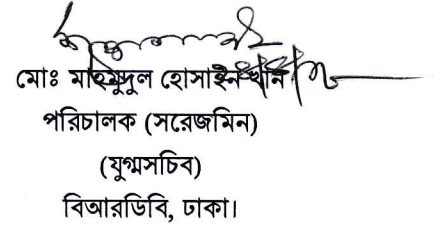 মোঃ মাহমুদুল হোসাইন খান
পরিচালক (সরেজমিন)
(যুগ্মসচিব)
বিআরডিবি, ঢাকা।